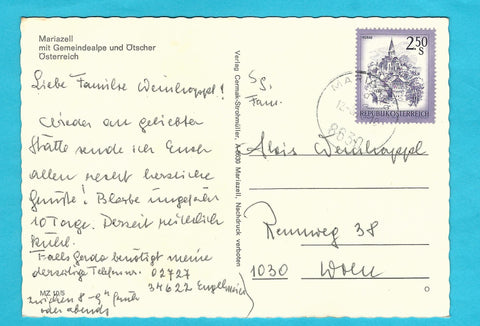 Mariazell
mit Gemeindealpe und Ötscher
Österreich
Liebe Familie Weinhappel!
Wieder an geliebter
Stätte sende ich Euch
allen recht herzliche
Grüße! Bleibe ungefähr
10 Tage. Derzeit ziemlich
kühl.
Falls Gerda benötigt meine
derzeitige Telefonnr. 02727
34622
zwischen 8-9h früh
oder abends
MZ 10/5
Verlag Cermak-Strohmüller, A-8630 Mariazell, Nachdruck verboten
2.50
S
REPUBLIK ÖSTERREICH
8630
Fam.
Alois Weinhappel
Rennweg 38
1030 Wien